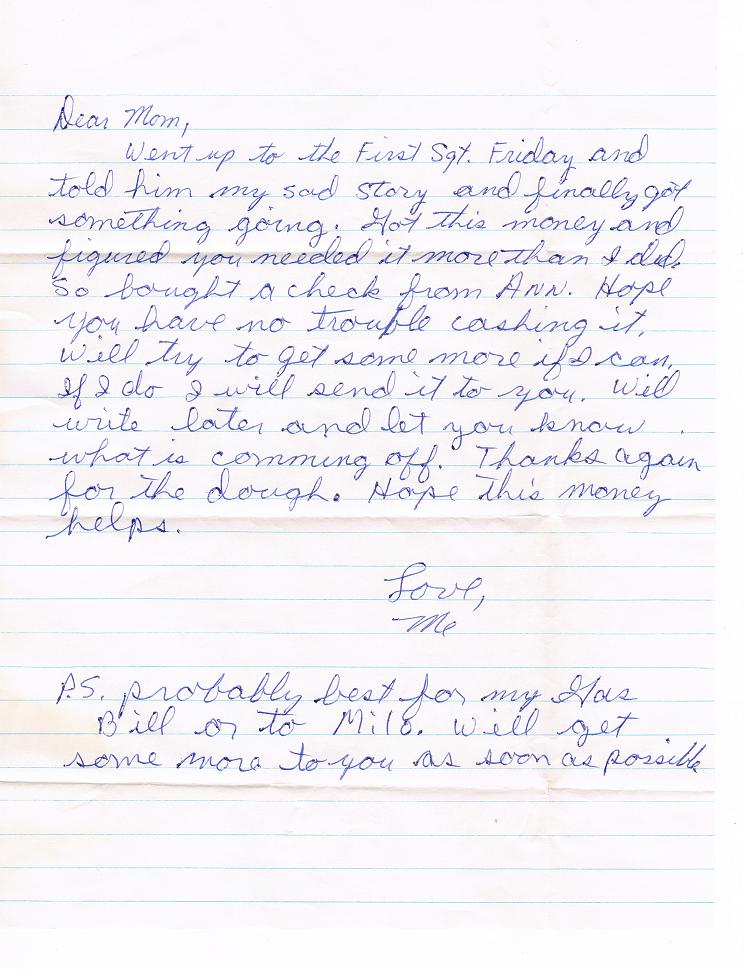 Dear Mom,
Went up to the First Sgt. Friday and
told him my sad story and finally got
something going. Got this money and
figured you needed it more than I did.
So bought a check from Ann. Hope
you have no trouble cashing it.
Will try to get some more if I can,
If I do I will send it to you. Will
write later and let you know
what is comming off. Thanks again
for the dough. Hope this money
helps.
Love,
Me
P.S. probably best for my Gas
Bill or to Milo. Will get
some more to you as soon as possible